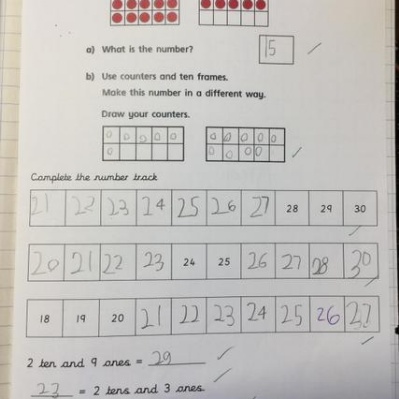 a) What is the number? 15
b) Use counters and ten frames.
Make this number in a different way.
Draw your counters.
Complete the number track
21 22 23 24 25 26 27 28 29 30
20 21 22 23 24 25 26 27 28 30
18 19 20 21 22 23 24 25 26 27
2 ten and 9 ones = 29
23 = 2 tens and 3 ones.